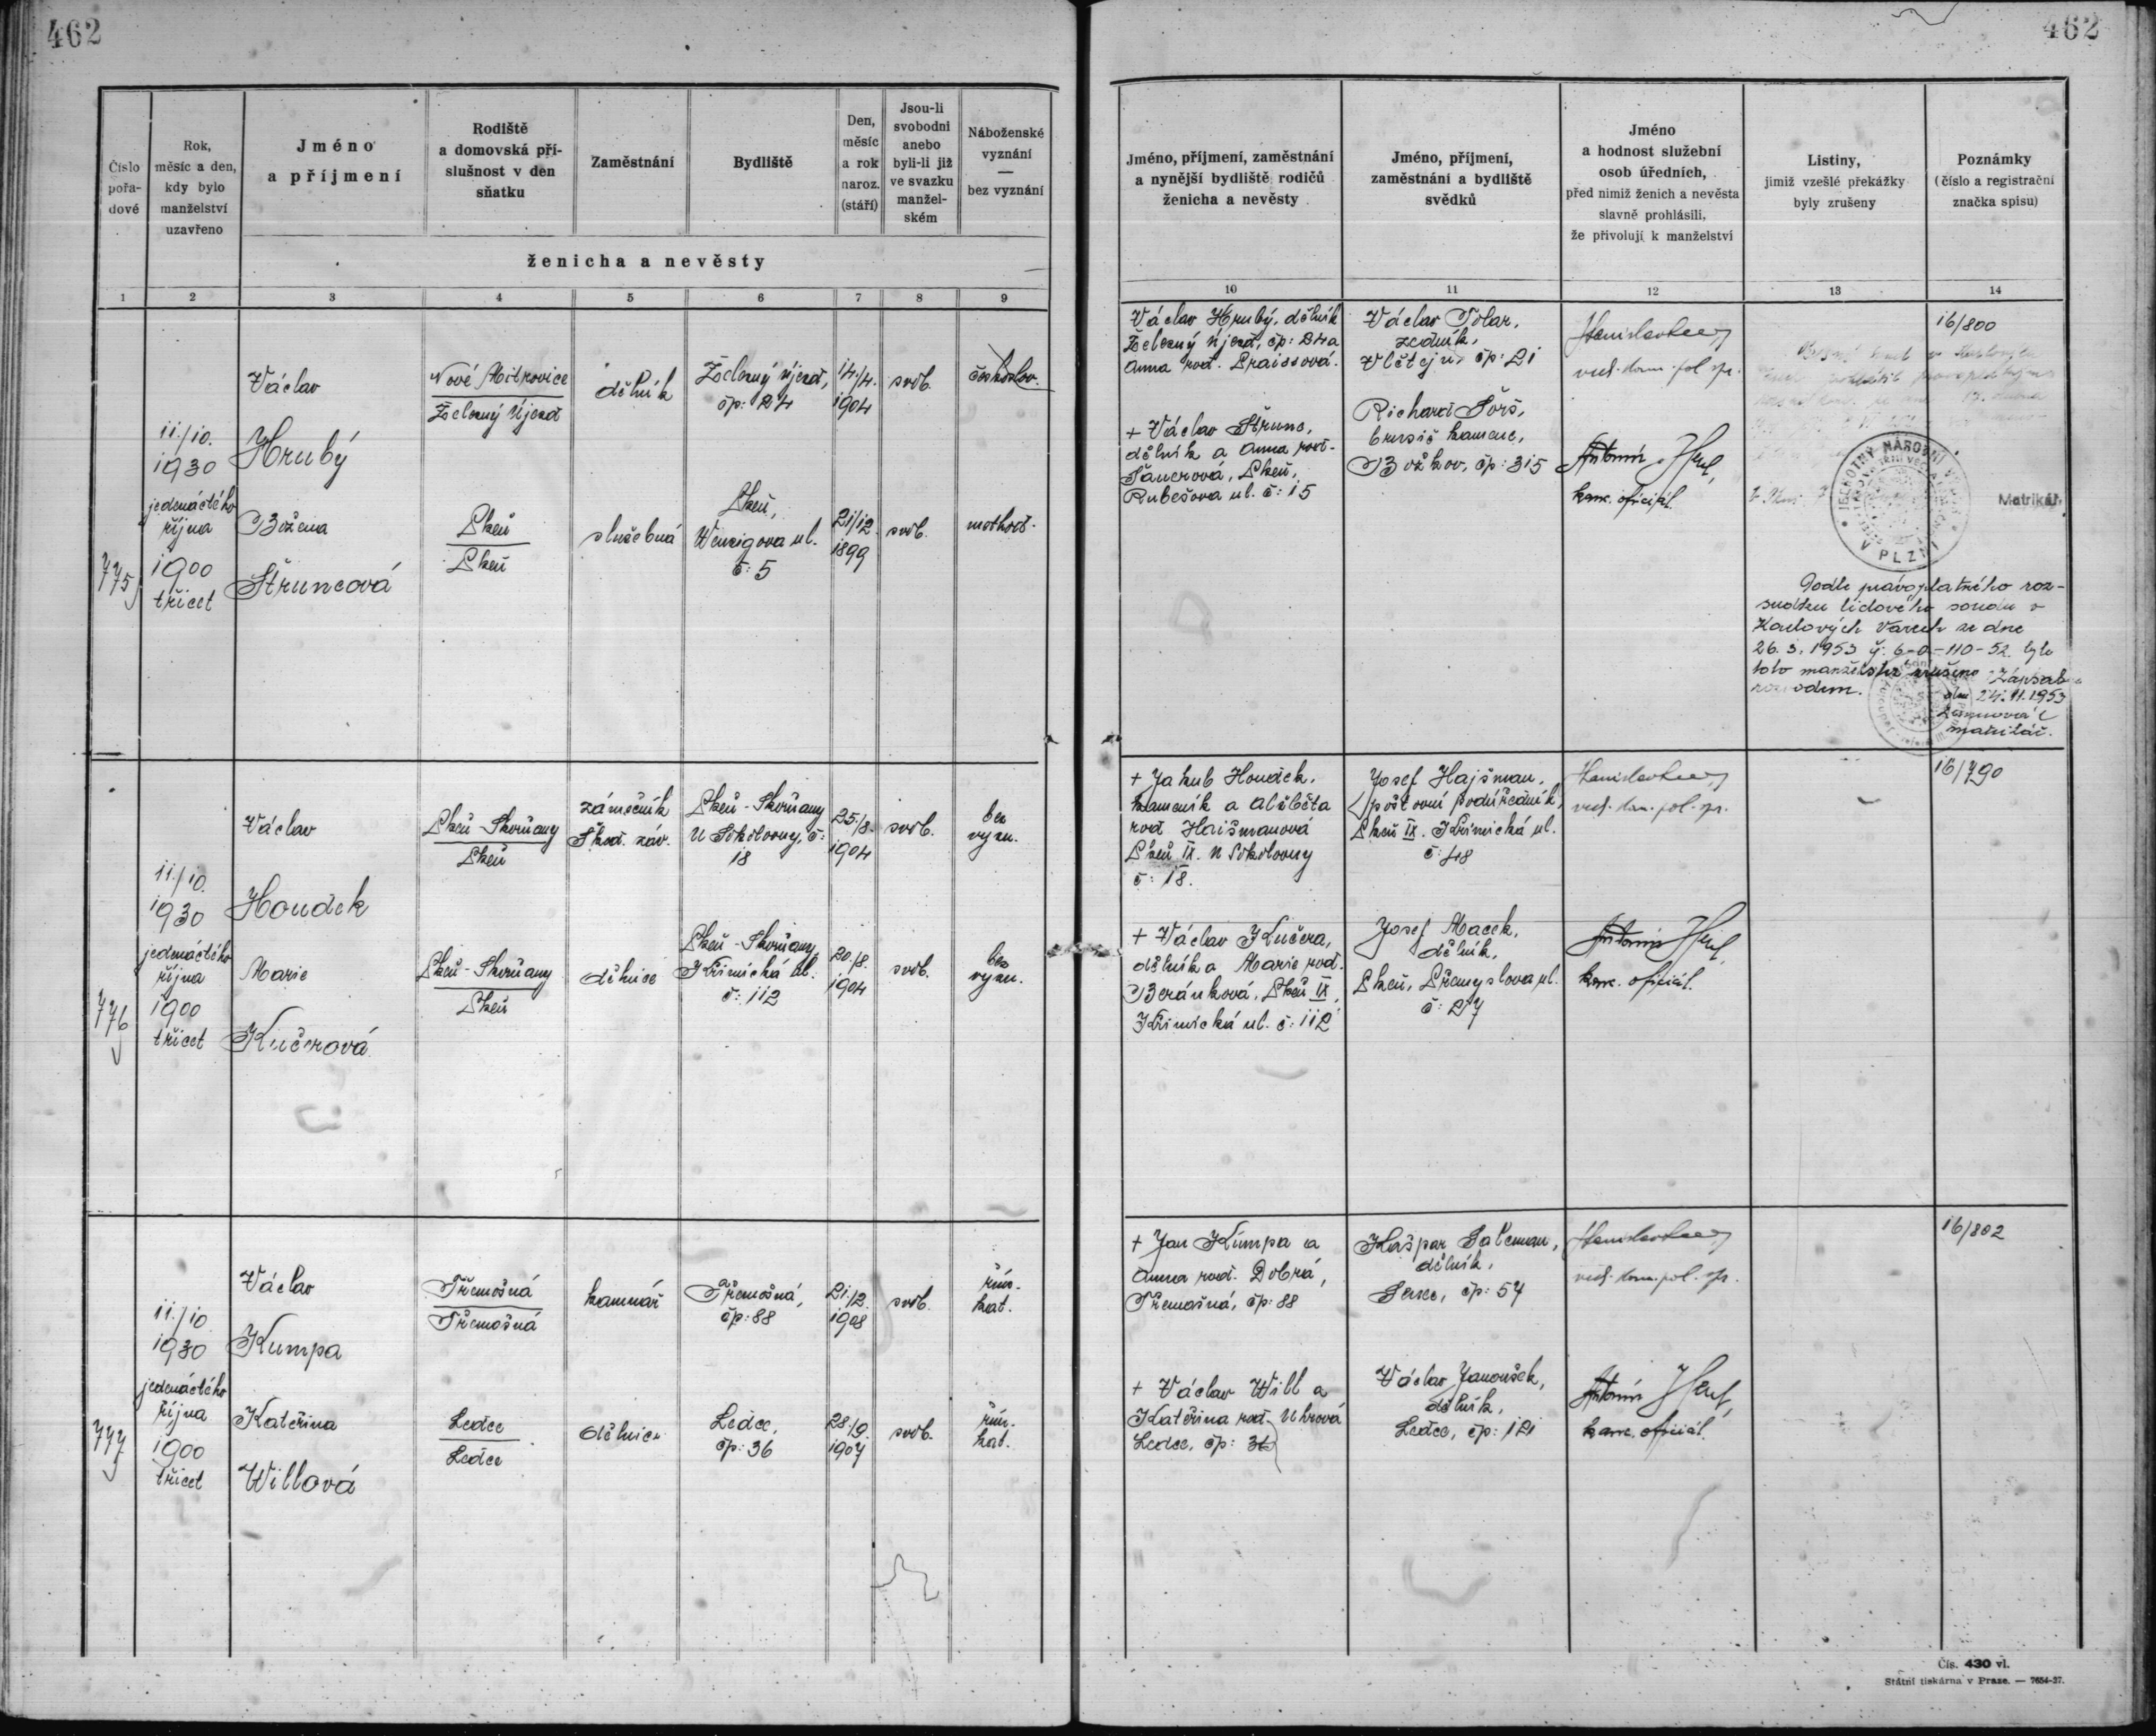 462
462
Číslo
pořa-
dové
Rok,
měsíc a den,
kdy bylo
manželství
uzavřeno
Jméno
a příjmení
Rodiště
a domovská pří-
slušnost v den
sňatku
Zaměstnání
Bydliště
Den,
měsíc
a rok
naroz.
(stáří)
Jsou-li
svobodni
anebo
byli-li již
ve svazku
manžel-
ském
Náboženské
vyznání
—
bez vyznání
ženicha a nevěsty
Jméno, příjmení, zaměstnání
a nynější bydliště rodičů
ženicha a nevěsty
Jméno, příjmení,
zaměstnání a bydliště
svědků
Jméno
a hodnost služební
osob úředních,
před nimiž ženich a nevěsta
slavně prohlásili,
že přivolují k manželství
Listiny,
jimiž vzešlé překážky
byly zrušeny
Poznámky
(číslo a registrační
značka spisu)
1 2 3 4 5 6 7 8 9
10 11 12 13 14
775
11./10.
1930
jedenáctého
října
1900
třicet
Václav
Hrubý
Nové Mitrovice
Železný Újezd
dělník
Železný Újezd,
čp: 24
14./4.
1904
svob.
českoslov.
Božena
Štruncová
Plzeň
Plzeň
služebná
Plzeň,
Wenzigova ul.
č: 5
21/12.
1899
svob.
Václav Hrubý, dělník
Železný Újezd, čp: 24 a
Anna roz. Praissová.
+ Václav Štrunc,
dělník a Anna roz.
Plzeň,
Rubešova ul. č: 15
Václav Tolar,
zedník,
Vlčtejn čp: 21
Richard
brusič kamene,
Božkov, čp: 315
ved. kom. pol. spr.
Antonín
kanc. oficiál.
16/800
JEDNOTNÝ NÁRODNÍ VÝBOR
V PLZNI
Matrikář
Podle právoplatného roz-
sudku lidového soudu v
Karlových Varech ze dne
26. 3. 1953 čj. 6-0-110-52 bylo
toto manželství zrušeno
rozvodem.
Zápsal
dne 24.11.1953
matrikář.
776
11./10.
1930
jedenáctého
října
1900
třicet
Václav
Houdek
Plzeň-Skvrňany
Plzeň
zámečník
Škod. záv.
Plzeň-Skvrňany
U Sokolovny, č:
18
25./8.
1904
svob.
bez
vyzn.
Marie
Kučerová
Plzeň-Skvrňany
Plzeň
dělnice
Plzeň-Skvrňany,
Křimická ul.
č: 112
20./8.
1904
svob.
bez
vyzn.
+ Jakub Houdek,
kameník a Alžběta
roz Hajšmanová
Plzeň IX. U Sokolovny
č: 18.
+ Václav Kučera,
dělník a Marie roz.
Beránková, Plzeň IX,
Křimická ul. č: 112
Josef Hajšman,
poštovní podúředník,
Plzeň IX. Křimická ul.
č: 48
Josef Macek,
dělník,
Plzeň, Přemyslova ul.
č: 27
ved. kom. pol. spr.
Antonín
kanc. oficiál.
16/790
777
11./10
1930
jedenáctého
října
1900
třicet
Václav
Kumpa
Třemošná
Třemošná
kamnář
Třemošná,
čp: 88
21./2.
1908
svob.
řím.
kat.
Kateřina
Willová
Ledce
Ledce
dělnice
Ledce,
čp: 36
28./9.
1907
svob.
řím.
kat.
+ Jan Kumpa a
Anna roz. Dobrá,
Třemošná, čp: 88
+ Václav Will a
Kateřina roz. Uhrová
Ledce, čp: 36
Kašpar
dělník,
čp: 54
Václav Janoušek,
dělník,
Ledce, čp: 121
ved. kom. pol. spr.
Antonín
kanc. oficiál.
16/802
Čís. 430 vl.
Státní tiskárna v Praze. — 7654-27.